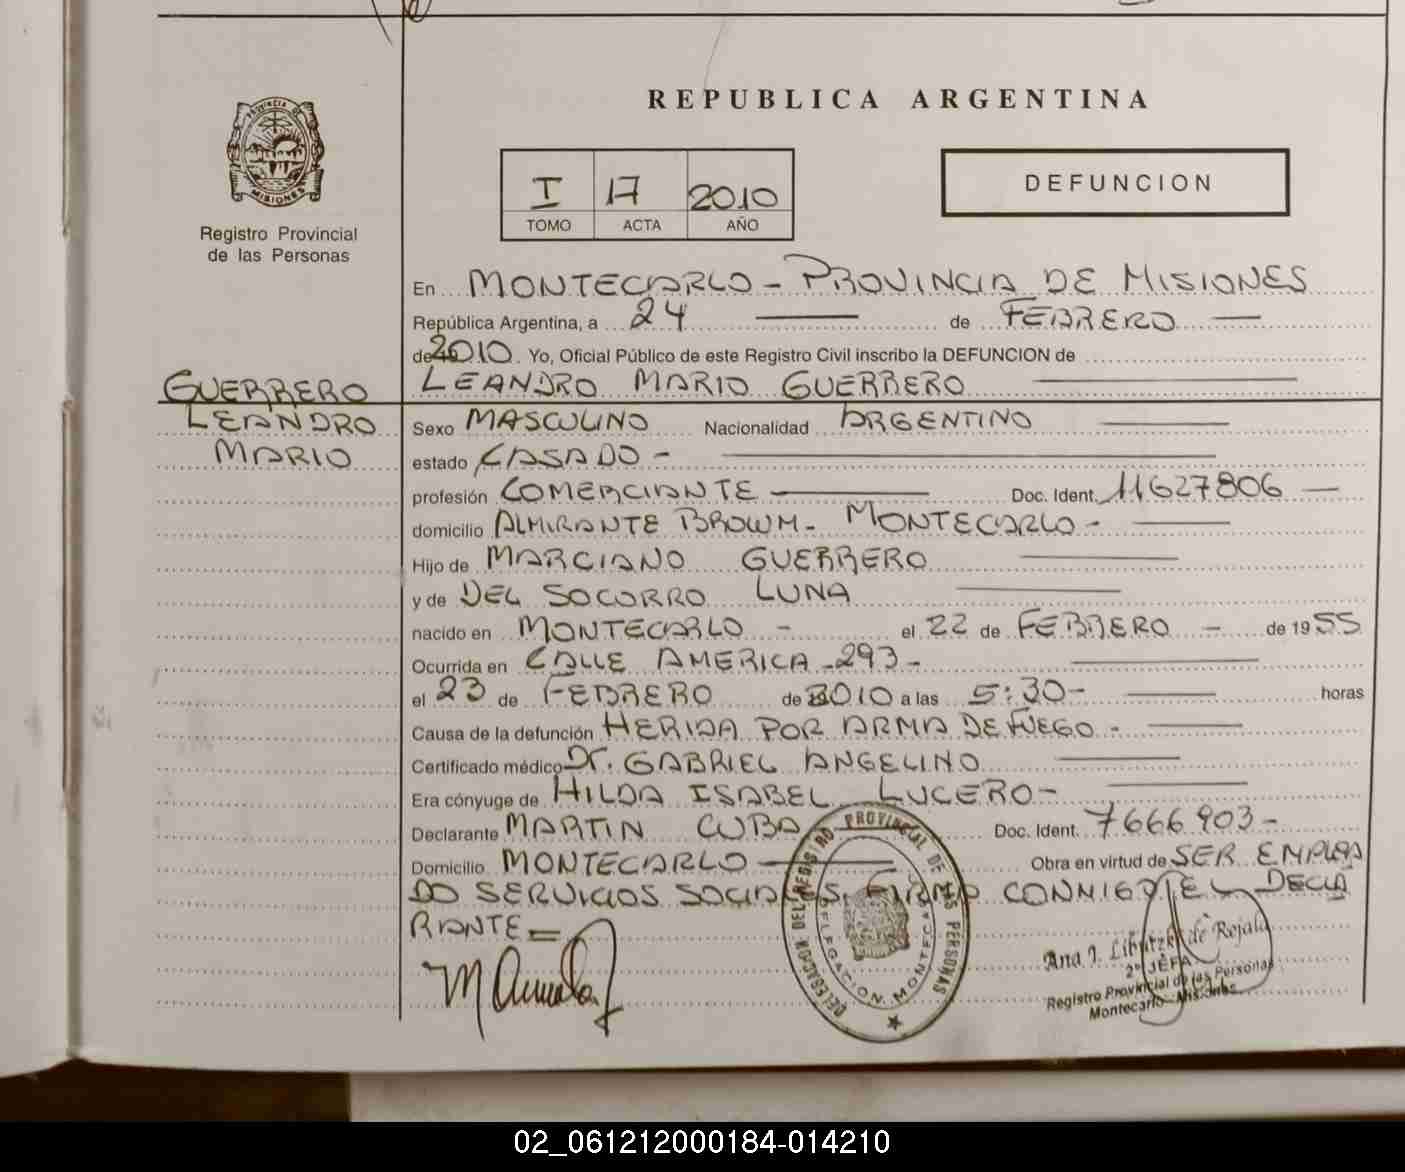 REPUBLICA ARGENTINA
PROVINCIA DE
MISIONES
Registro Provincial
de las Personas
I 17 2010
TOMO ACTA AÑO
DEFUNCION
En MONTECARLO - PROVINCIA DE MISIONES
República Argentina, a 24 de FEBRERO
de 2010. Yo, Oficial Público de este Registro Civil inscribo la DEFUNCION de
LEANDRO MARIO GUERRERO
GUERRERO
LEANDRO
MARIO
Sexo MASCULINO Nacionalidad ARGENTINO
estado CASADO -
profesión COMERCIANTE Doc. Ident. 11627806
domicilio ALMIRANTE BROWM - MONTECARLO -
Hijo de MARCIANO GUERRERO
y de DEL SOCORRO LUNA
nacido en MONTECARLO - el 22 de FEBRERO - de 1955
Ocurrida en CALLE AMERICA - 293 -
el 23 de FEBRERO de 2010 a las 5:30 - horas
Causa de la defunción HERIDA POR ARMA DE FUEGO -
Certificado médico Dr. GABRIEL ANGELINO
Era cónyuge de HILDA ISABEL LUCERO -
Declarante MARTIN CUBA Doc. Ident. 7666903 -
Domicilio MONTECARLO Obra en virtud de SER EMPLEA
DO SERVICIOS SOCIALES. FIRMA CONMIGO EL DECLA
RANTE =
DELEGACION DEL REGISTRO PROVINCIAL DE LAS PERSONAS
DELEGACION MONTECARLO
Ana I. de Rojala
2º JEFA
Registro Provincial de las Personas
Montecarlo - Misiones
02_061212000184-014210